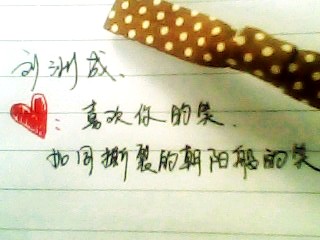 刘洲成、
: 喜欢你的笑.
如同撕裂的朝阳般的笑